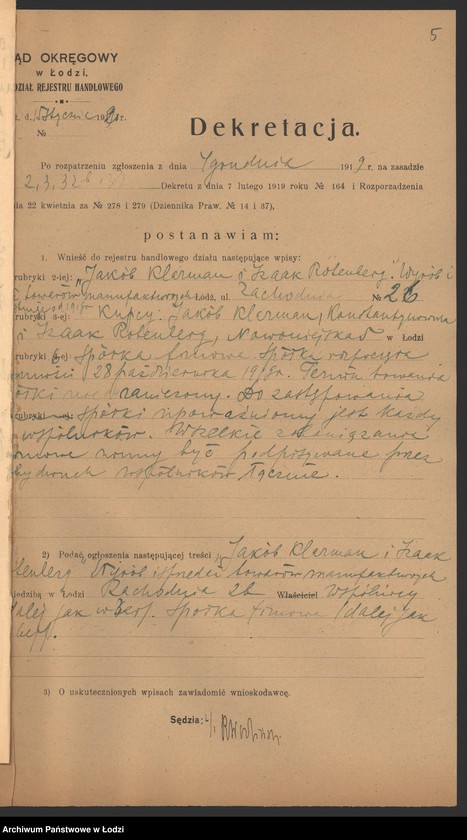 5
ĄD OKRĘGOWY
w Łodzi.
DZIAŁ REJESTRU HANDLOWEGO
d. Stycznia 1920 r.
№
Dekretacja.
Po rozpatrzeniu zgłoszenia z dnia 1 grudnia 1919 r. na zasadzie
2, 3, 32 Dekretu z dnia 7 lutego 1919 roku № 164 i Rozporządzenia
ia 22 kwietnia za № 278 i 279 (Dziennika Praw. № 14 i 37),
postanawiam:
1. Wnieść do rejestru handlowego działu następujące wpisy:
rubryki 2-iej: „Jakób Klerman i Izaak Rotenberg". Wyrób i
towarów manufakturowych Łódź, ul. Zachodnia № 26
rubryki 3-ej: Kupcy: Jakób Klerman, Konstantynowska
i Izaak Rotenberg, Nowomiejska 5 w Łodzi
rubryki 6-ej: Spółka firmowa. Spółka rozpoczęta
28 października 1919 r. Termin trwania
nieograniczony. Do zastępowania
rubryki spółki upoważniony jest każdy
wspólników. Wszelkie zobowiązania
winny być podpisywane przez
wspólników łącznie.
2) Podać ogłoszenia następującej treści „Jakób Klerman i Izaak
tenberg" Wyrób i sprzedaż towarów manufakturowych
iedzibą w Łodzi Zachodnia 26 Właściciel Wspólnicy
dalej jak w Spółka firmowa (dalej jak
3) O uskutecznionych wpisach zawiadomić wnioskodawcę.
Sędzia:
Archiwum Państwowe w Łodzi